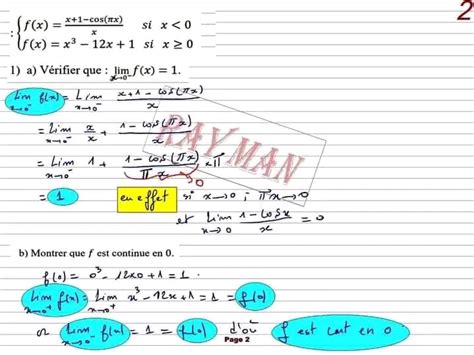 2
: { f(x) = \frac{x+1-cos(πx)}{x} si x < 0
f(x) = x³ − 12x + 1 si x ≥ 0
1) a) Vérifier que : lim_{x→0⁻} f(x) = 1.
lim_{x→0⁻} f(x) = lim_{x→0⁻} \frac{x+1-cos(πx)}{x}
= lim_{x→0⁻} \frac{x}{x} + \frac{1-cos(πx)}{x}
= lim_{x→0⁻} 1 + \frac{1-cos(πx)}{πx} × π
→0
= 1 en effet si x→0 ; πx→0
et lim_{x→0} \frac{1-cosx}{x} = 0
RAYMAN
b) Montrer que f est continue en 0.
f(0) = 0³ − 12x0 + 1 = 1.
lim_{x→0⁺} f(x) = lim_{x→0⁺} x³ − 12x + 1 = 1 = f(0)
or lim_{x→0⁻} f(x) = 1 = f(0) d'où f est cont en 0
Page 2